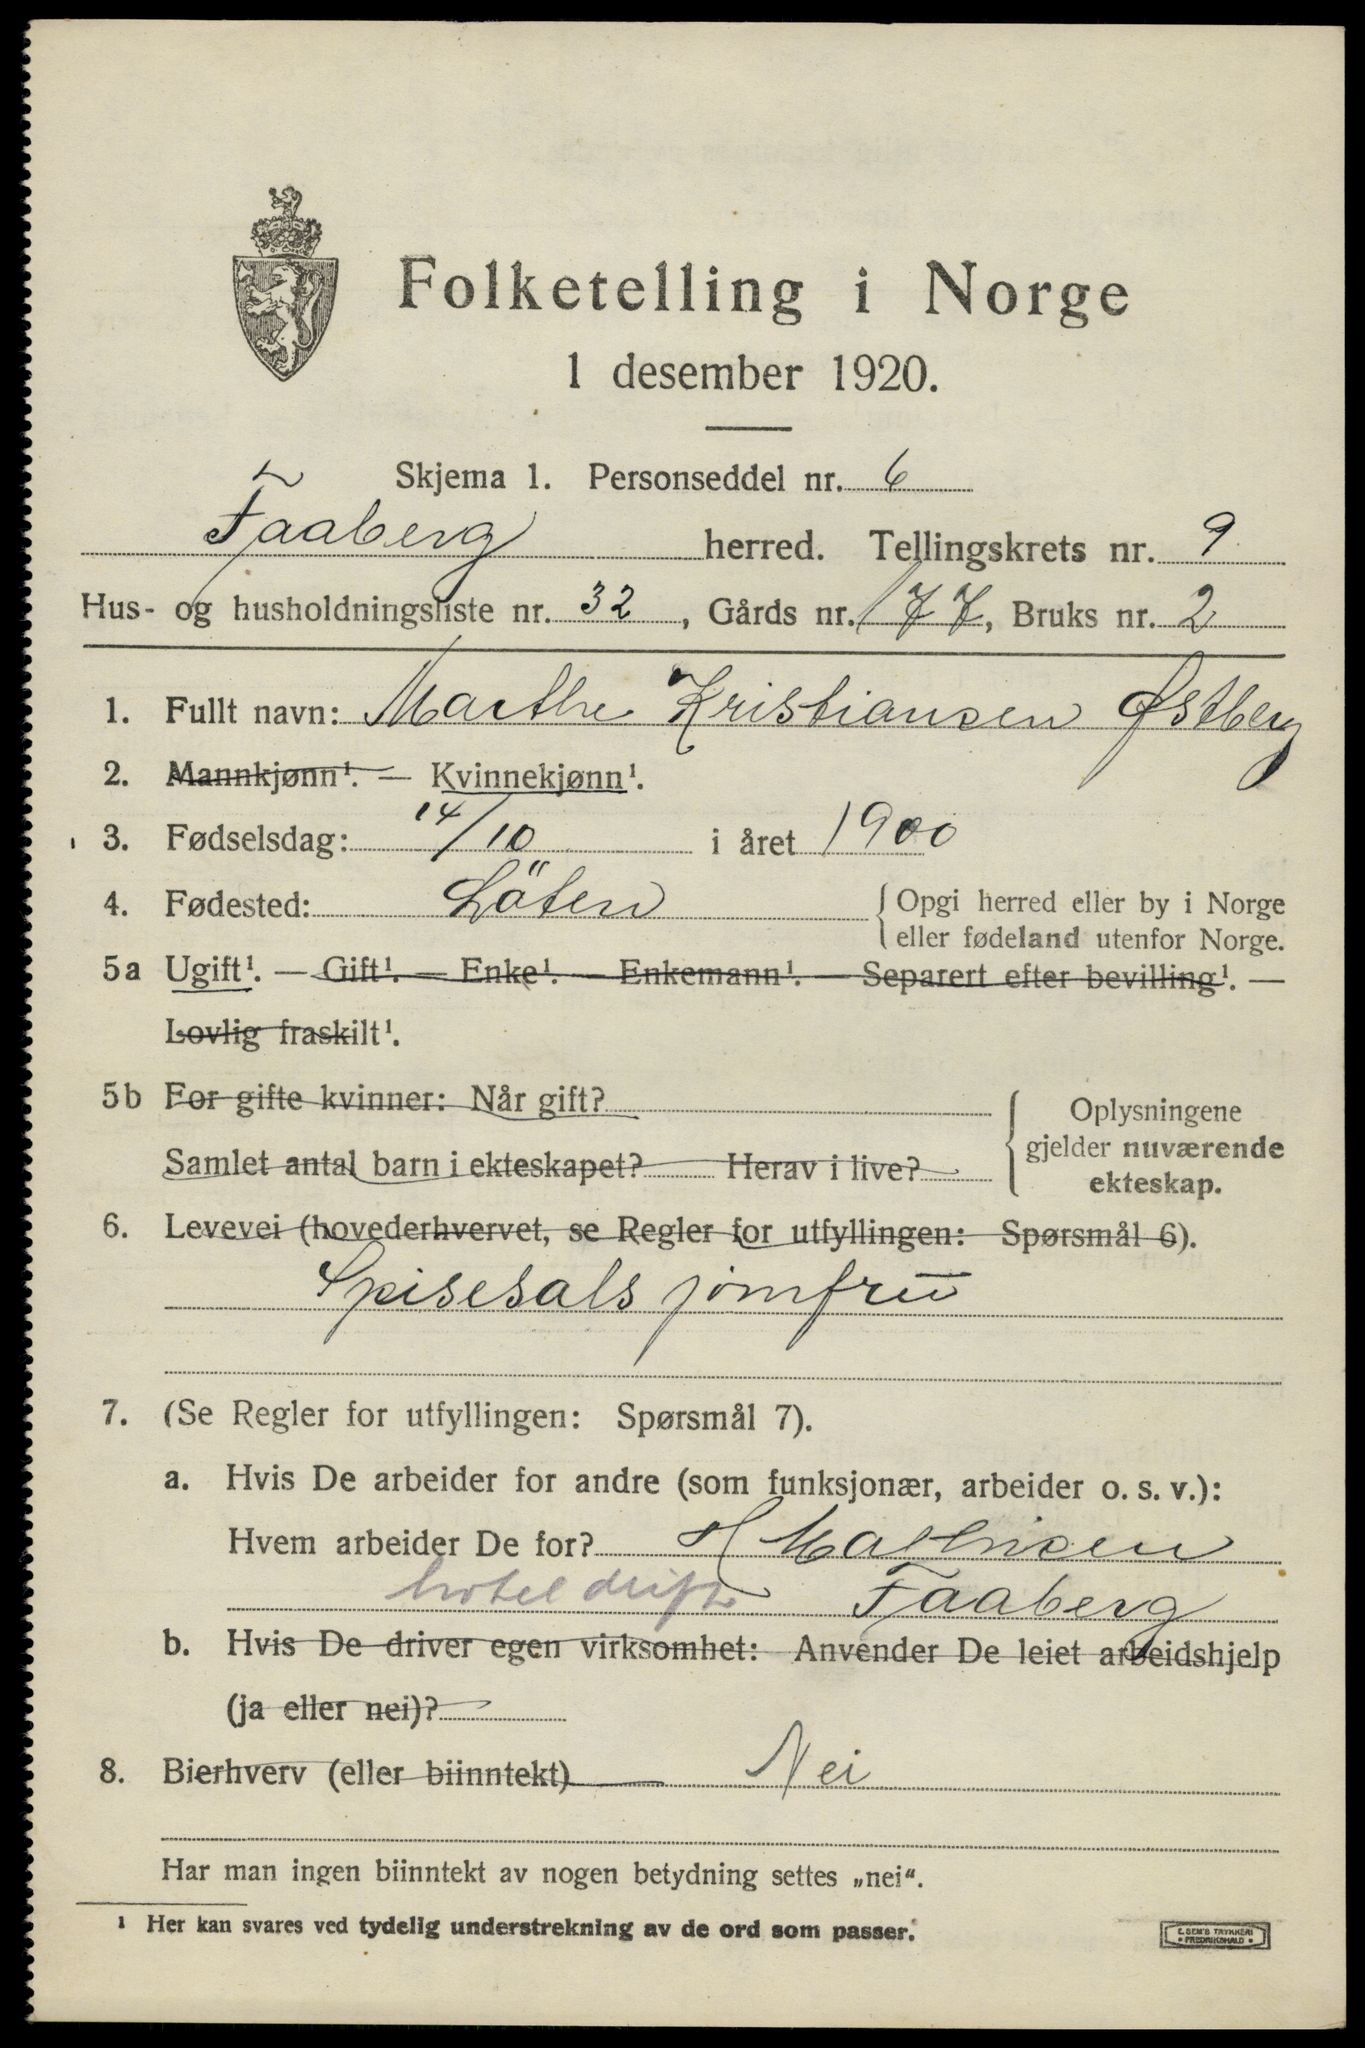 Folketelling i Norge
1 desember 1920.
Skjema 1. Personseddel nr. 6
Faaberg herred. Tellingskrets nr. 9
Hus- og husholdningsliste nr. 32, Gårds nr. 177, Bruks nr. 2
1. Fullt navn: Marthe Kristiansen Østberg
2. Mannkjønn¹. — Kvinnekjønn¹.
3. Fødselsdag: 14/10 i året 1900
4. Fødested: Löten { Opgi herred eller by i Norge
eller fødeland utenfor Norge.
5a Ugift¹. — Gift¹. — Enke¹. — Enkemann¹. — Separert efter bevilling¹. —
Lovlig fraskilt¹.
5b For gifte kvinner: Når gift?
Samlet antal barn i ekteskapet? Herav i live?
Oplysningene
gjelder nuværende
ekteskap.
6. Levevei (hovederhvervet, se Regler for utfyllingen: Spørsmål 6).
Spisesals jomfru
7. (Se Regler for utfyllingen: Spørsmål 7).
a. Hvis De arbeider for andre (som funksjonær, arbeider o. s. v.):
Hvem arbeider De for? H Mathisen
hoteldrift Faaberg
b. Hvis De driver egen virksomhet: Anvender De leiet arbeidshjelp
(ja eller nei)?
8. Bierhverv (eller biinntekt) Nei
Har man ingen biinntekt av nogen betydning settes „nei“.
¹ Her kan svares ved tydelig understrekning av de ord som passer.
E. SEM'S TRYKKERI
• FREDRIKSHALD •